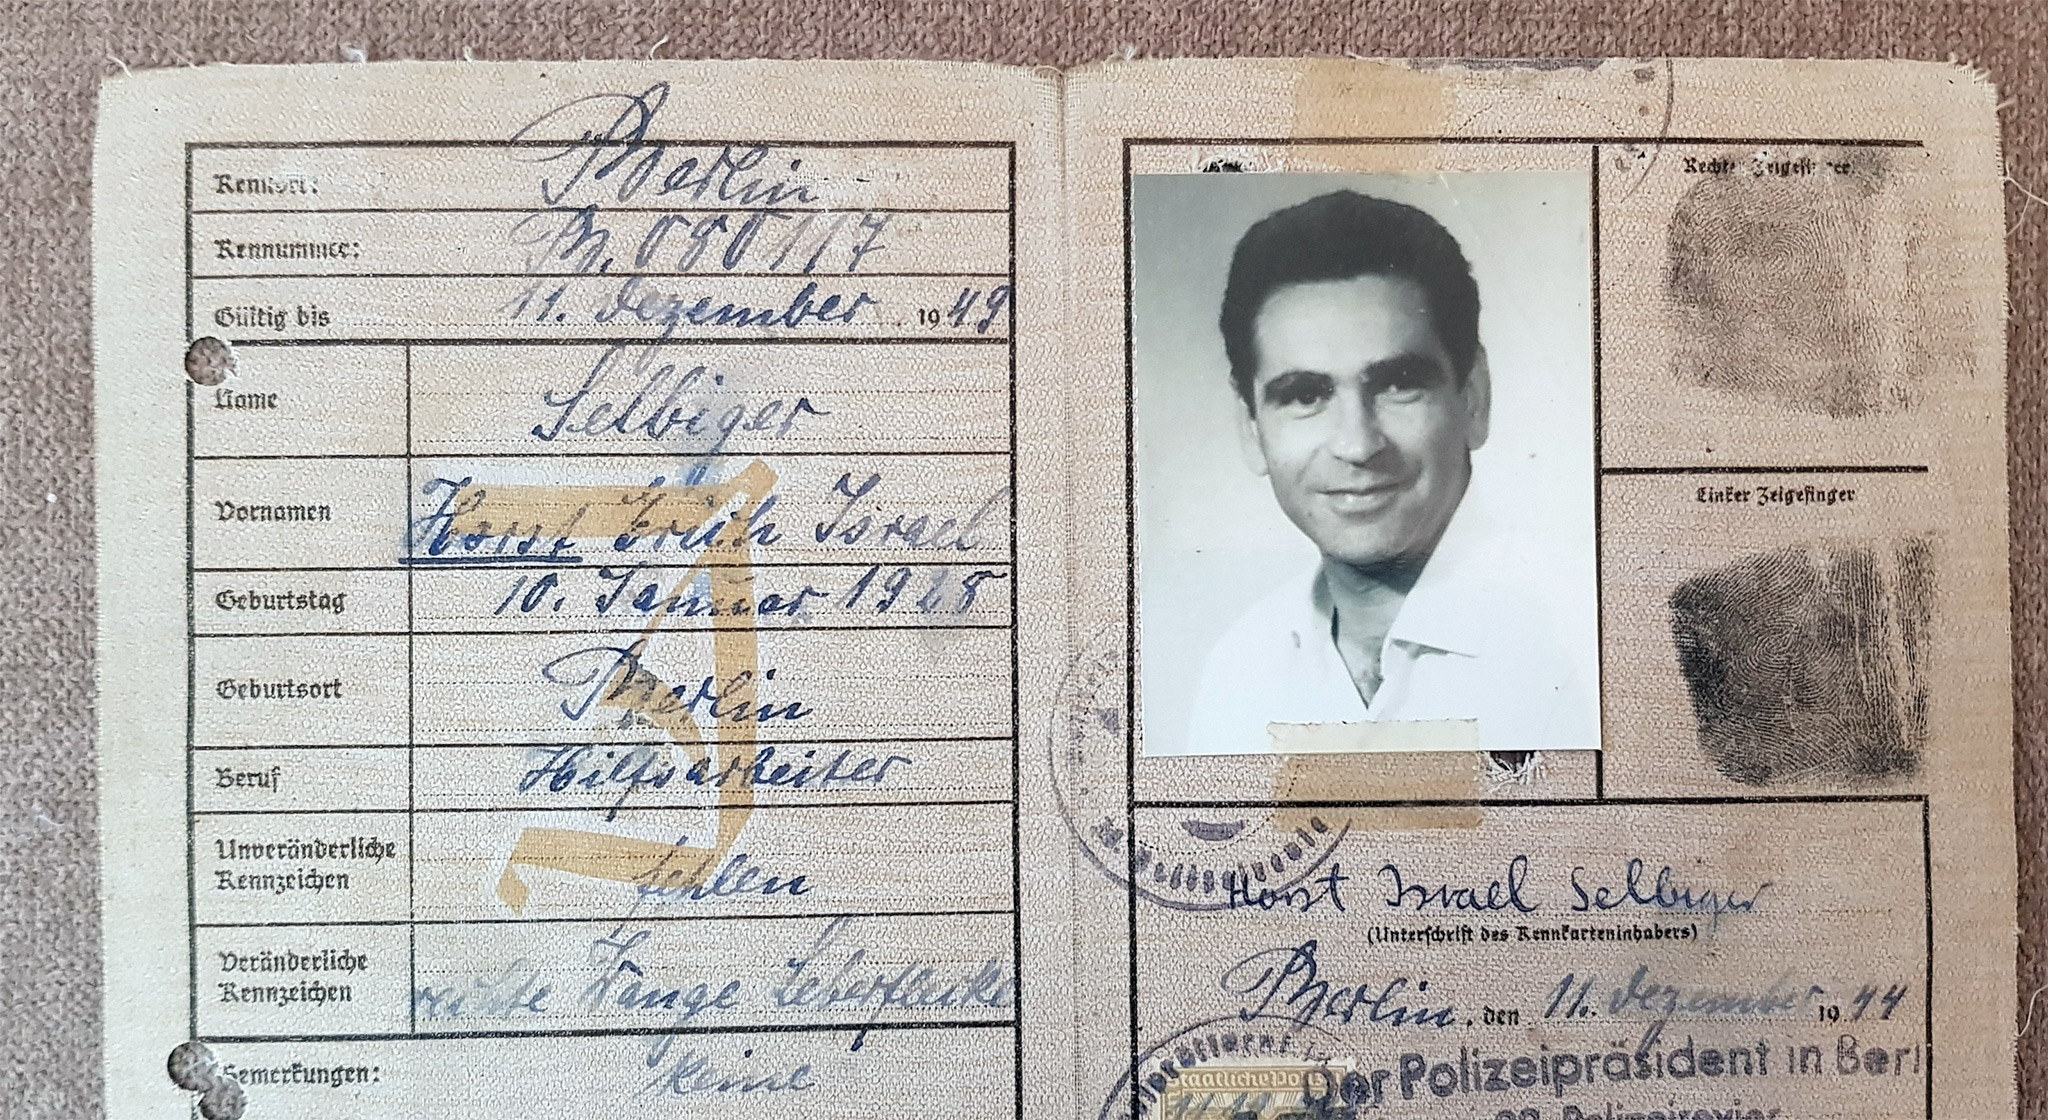 Kennort: Berlin
Kennummer: B. 050117
Gültig bis 11. Dezember 1949
Name Selbiger
Vornamen Horst Erich Israel
Geburtstag 10. Januar 1928
Geburtsort Berlin
Beruf Hilfsarbeiter
Unveränderliche
Kennzeichen fehlen
Veränderliche
Kennzeichen rechte Wange Leberflecke
Bemerkungen: keine
J
Rechter Zeigefinger
Linker Zeigefinger
Horst Israel Selbiger
(Unterschrift des Kennkarteninhabers)
Berlin, den 11. Dezember 1944
Der Polizeipräsident in Berl
Polizeirevier